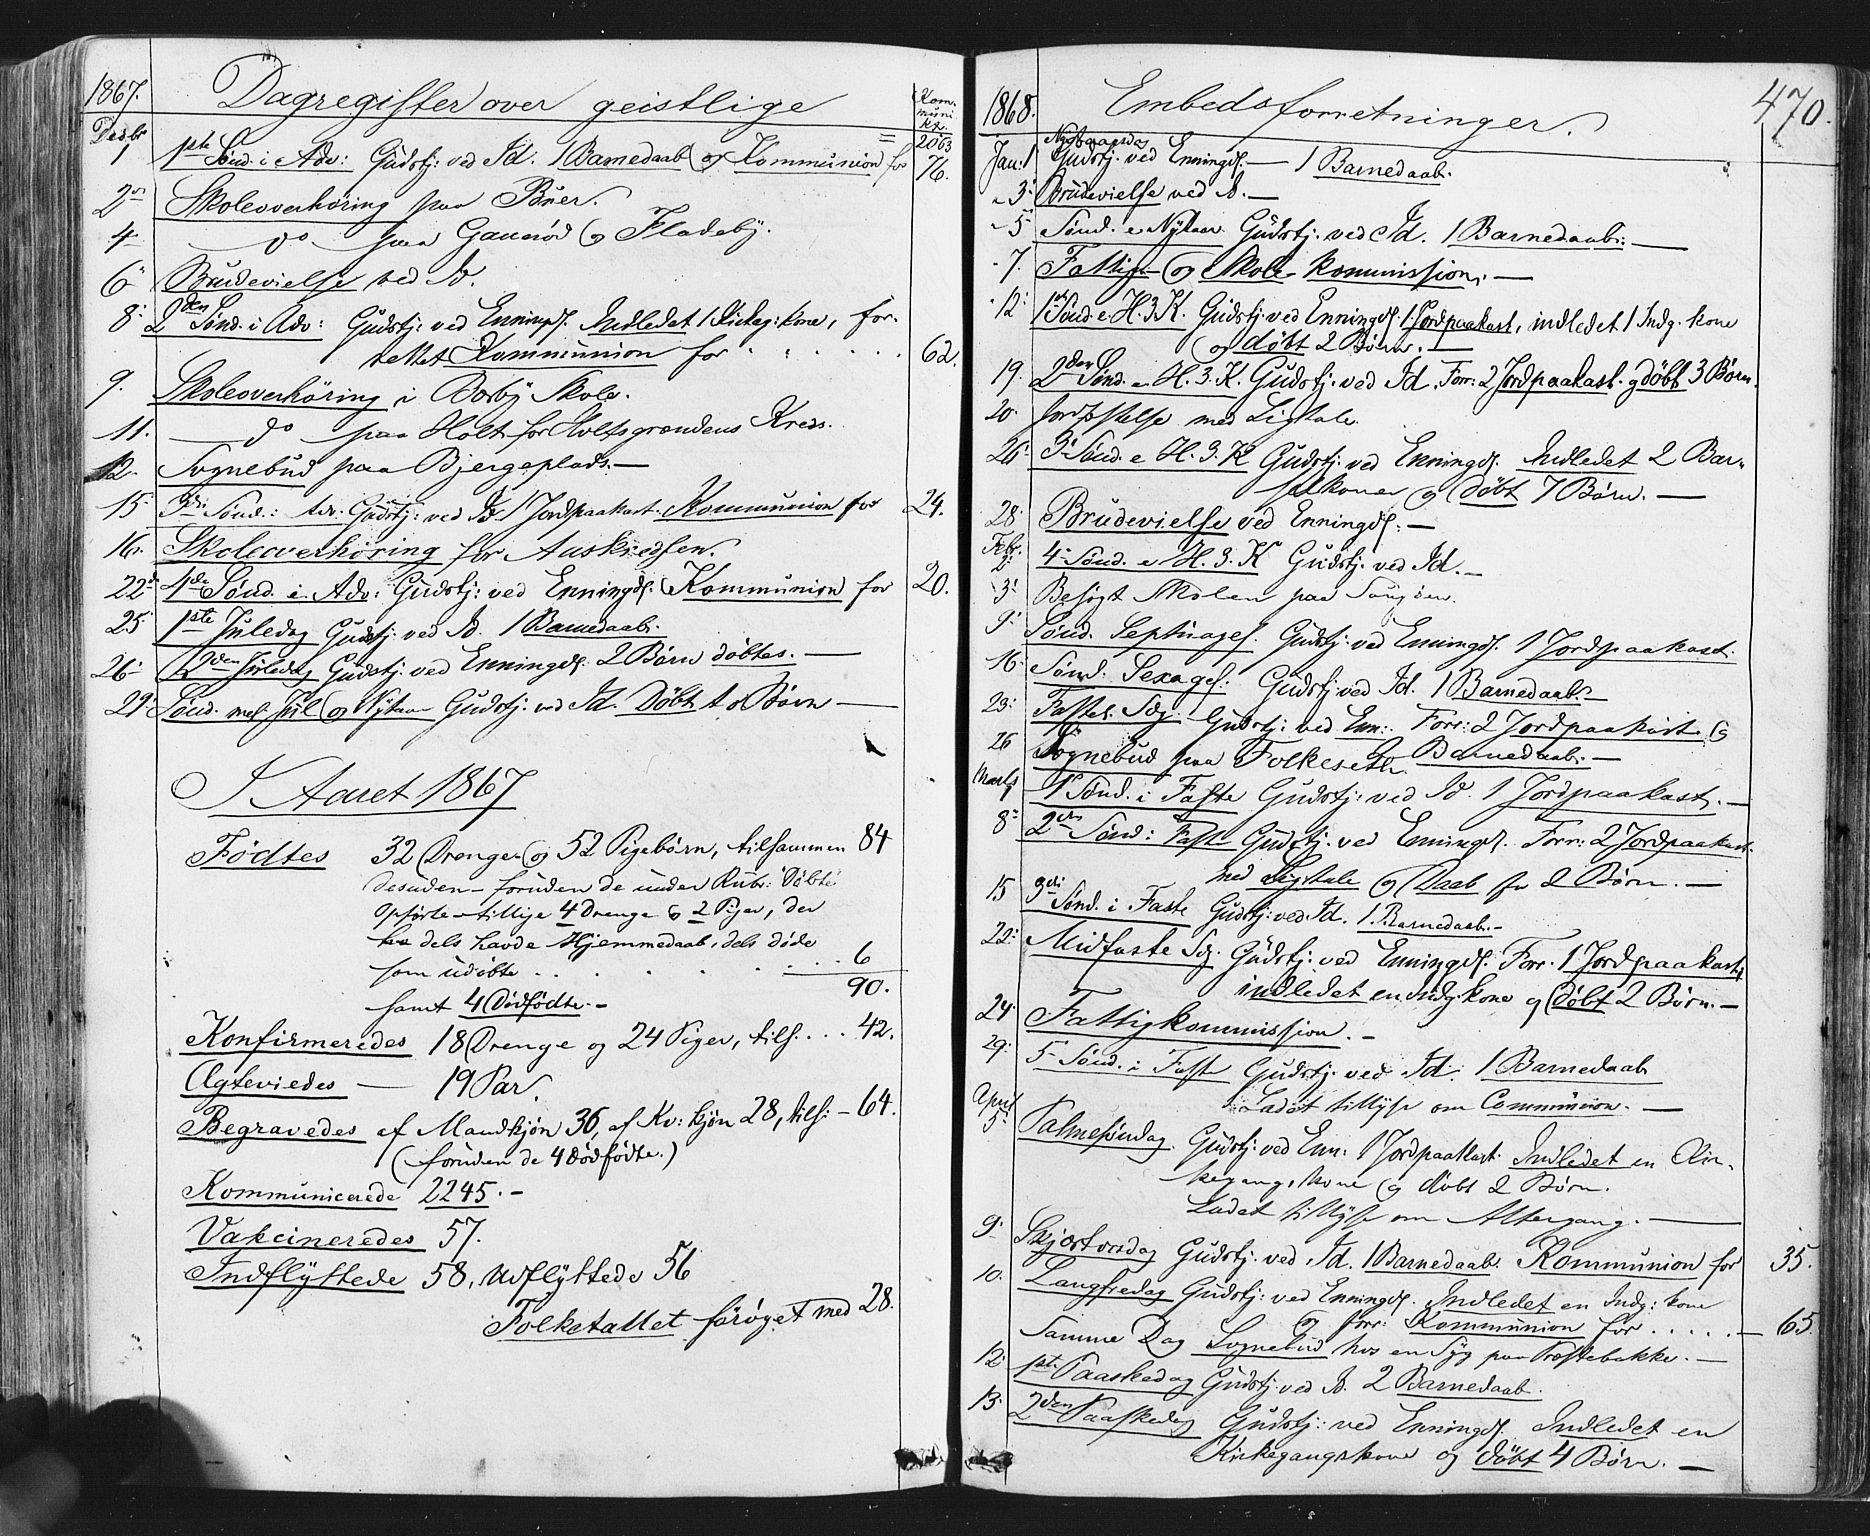 1867. Dagregister over geistlige
Kommunikr.
Decbr 2063
1 1ste Sønd. i Adv: Gudstj: ved Id. 1 Barnedaab og Kommunion for 76.
2 Skoleoverhøring paa Buer.
4 — do — paa Gauerød og Fladeby.
6 Brudevielse ved Id.
8 2den Sønd. i Adv: Gudstj: ved Enningd. Indledet 1 Kirkeg: kone, for-
rettet Kommunion for . . . . . 62.
9. Skoleoverhøring i Borby Skole.
11. — do — paa Holt for Holtsgrændens Kreds.
12. Sognebud paa Bjergeplads. —
15. 3die Sønd: Adv: Gudstj: ved Id 1 Jordpaakast. Kommunion for 24.
16. Skoleoverhøring for Aaskredsen.
22. 4de Sønd. i Adv: Gudstj: ved Enningd. Kommunion for 20.
25 1ste Juledag Gudstj. ved Id. 1 Barnedaab.
26 2den Juledag Gudstj: ved Enningd. 2 Børn døbtes. —
29 Sønd. mel. Jul og Nytaar Gudstj. ved Id. Døbt to Børn —
I Aaret 1867
Fødtes 32 Drenge og 52 Pigebørn, tilsammen 84
desuden – foruden de under Rubr: "Døbte"
opførte – tillige 4 Drenge og 2 Piger, der
dels havde Hjemmedaab, dels døde
som udøbte . . . . . . . 6
90.
samt 4 Dødfødte. –
Konfirmeredes 18 Drenge og 24 Piger, tils. . . . 42.
Ægteviedes — 19 Par.
Begravedes af Mandkjøn 36, af Kv: kjøn 28, tils: – 64.
(foruden de 4 dødfødte.)
Kommunicerede 2245. –
Vakcineredes 57.
Indflyttede 58, Udflyttede 56
Folketallet forøget med 28.
1868. Embedsforretninger. 470.
Jan: 1 Nytaarsdag Gudstj: ved Enningd. — 1 Barnedaab.
3 Brudevielse ved Id. —
5 Sønd. e Nytaar Gudstj. ved Id. 1 Barnedaab. —
7. Fattig- og Skole-kommission. —
12 1ste Sønd. e. H. 3 K. Gudstj: ved Enningd 1 Jordpaakast, indledet 1 Indg. kone
og døbt 2 Børn. —
19. 2den Sønd. e. H. 3. K. Gudstj: ved Id. Forr: 2 Jordpaakast. og døbt 3 Børn.
20. Jordfæstelse med Ligtale.
26. 3die Sønd e H. 3. K Gudstj: ved Enningd. Indledet 2 Bar-
selkoner og døbt 7 Børn. —
28 Brudevielse ved Enningd. —
Febr.
2 4de Sønd. e. H. 3. K Gudstj: ved Id. —
3 Besøgt Skolen paa Saugøen.
9 Sønd. Septuages. Gudstj: ved Enningd. 1 Jordpaakast.
16. Sønd: Sexages: Gudstj: ved Id. 1 Barnedaab. —
23 Fastel. Sdg. Gudstj: ved Enn: Forr: 2 Jordpaakast. og
Barnedaab. —
26 Sognebud paa Folkeseth
Marts
1 1ste Sønd. i Faste Gudstj: ved Id. 1 Jordpaakast. —
8 2den Sønd: Faste Gudstj: ved Enningd. Forr: 2 Jordpaakast.
med Ligtale og Daab for 2 Børn. —
15 3die Sønd. i Faste Gudstj: ved Id. 1. Barnedaab. –
22 Midfaste Sdg. Gudstj: ved Enningd. Forr. 1 Jordpaakast,
indledet en Indg. kone og døbt 2 Børn. –
24 Fattigkommission. –
29. 5te Sønd. i Faste Gudstj. ved Id. 1 Barnedaab
Ladet tillyse om Communion. —
April
5 Palmesøndag Gudstj: ved Enn: 1 Jordpaakast Indledet en Kir-
kegangskone og døbt 2 Børn.
Ladet tillyse om Altergang. —
9 Skjærtorsdag Gudstj: ved Id. 1 Barnedaab. Kommunion for 35.
10. Langfredag Gudstj: ved Enningd. Indledet en Indg: kone
og forr: Kommunion for . . . . . — 65.
Samme Dag Sognebud hos en Syg paa Præstebakke. —
12 1ste Paaskedag Gudstj. ved Id. 2 Barnedaab.
13. 2den Paaskedag Gudstj: ved Enningd. Indledet en
Kirkegangskone og døbt 4 Børn. —